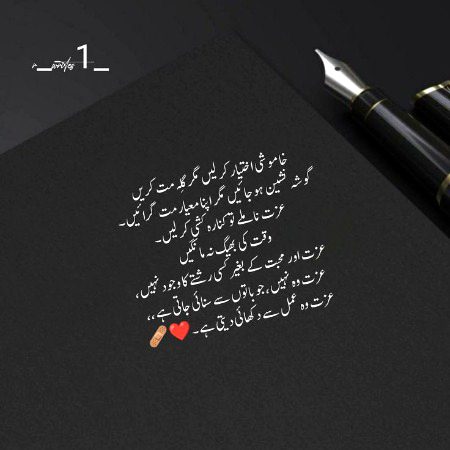 _writes_1_
خاموشی اختیار کر لیں مگر گلہ مت کریں
گوشہ نشین ہو جائیں مگر اپنا معیار مت گرائیں۔
عزت نا ملے تو کنارہ کشی کر لیں۔
وقت کی بھیگ نہ مانگیں
عزت اور محبت کے بغیر کسی رشتے کا وجود نہیں،
عزت وہ نہیں، جو باتوں سے سنائی جاتی ہے،،
عزت وہ عمل سے دکھائی دیتی ہے۔ ❤️🩹